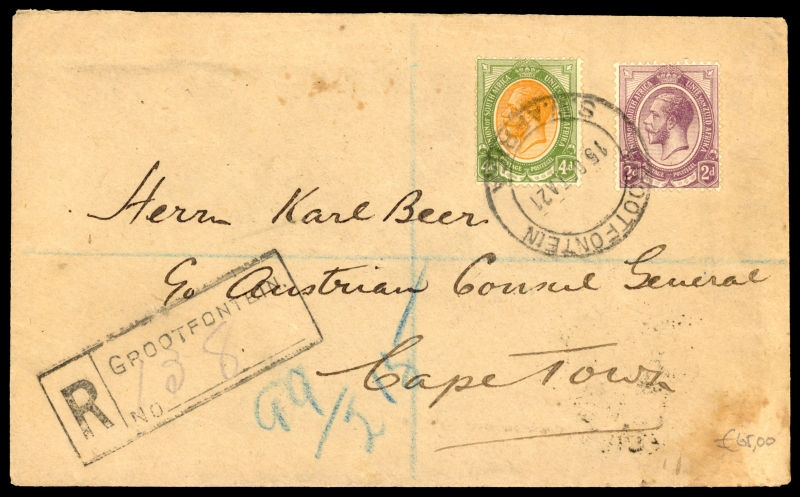 UNION OF SOUTH AFRICA UNIE VAN ZUID AFRIKA
POSTAGE POSTZEGEL
4d 4d
UNION OF SOUTH AFRICA UNIE VAN ZUID AFRIKA
POSTAGE POSTZEGEL
2d 2d
GROOTFONTEIN
15 OCT A21
Herrn Karl Beer
c/o Austrian Consul General
Cape Town
R GROOTFONTEIN
No 138
99/2
£65,00